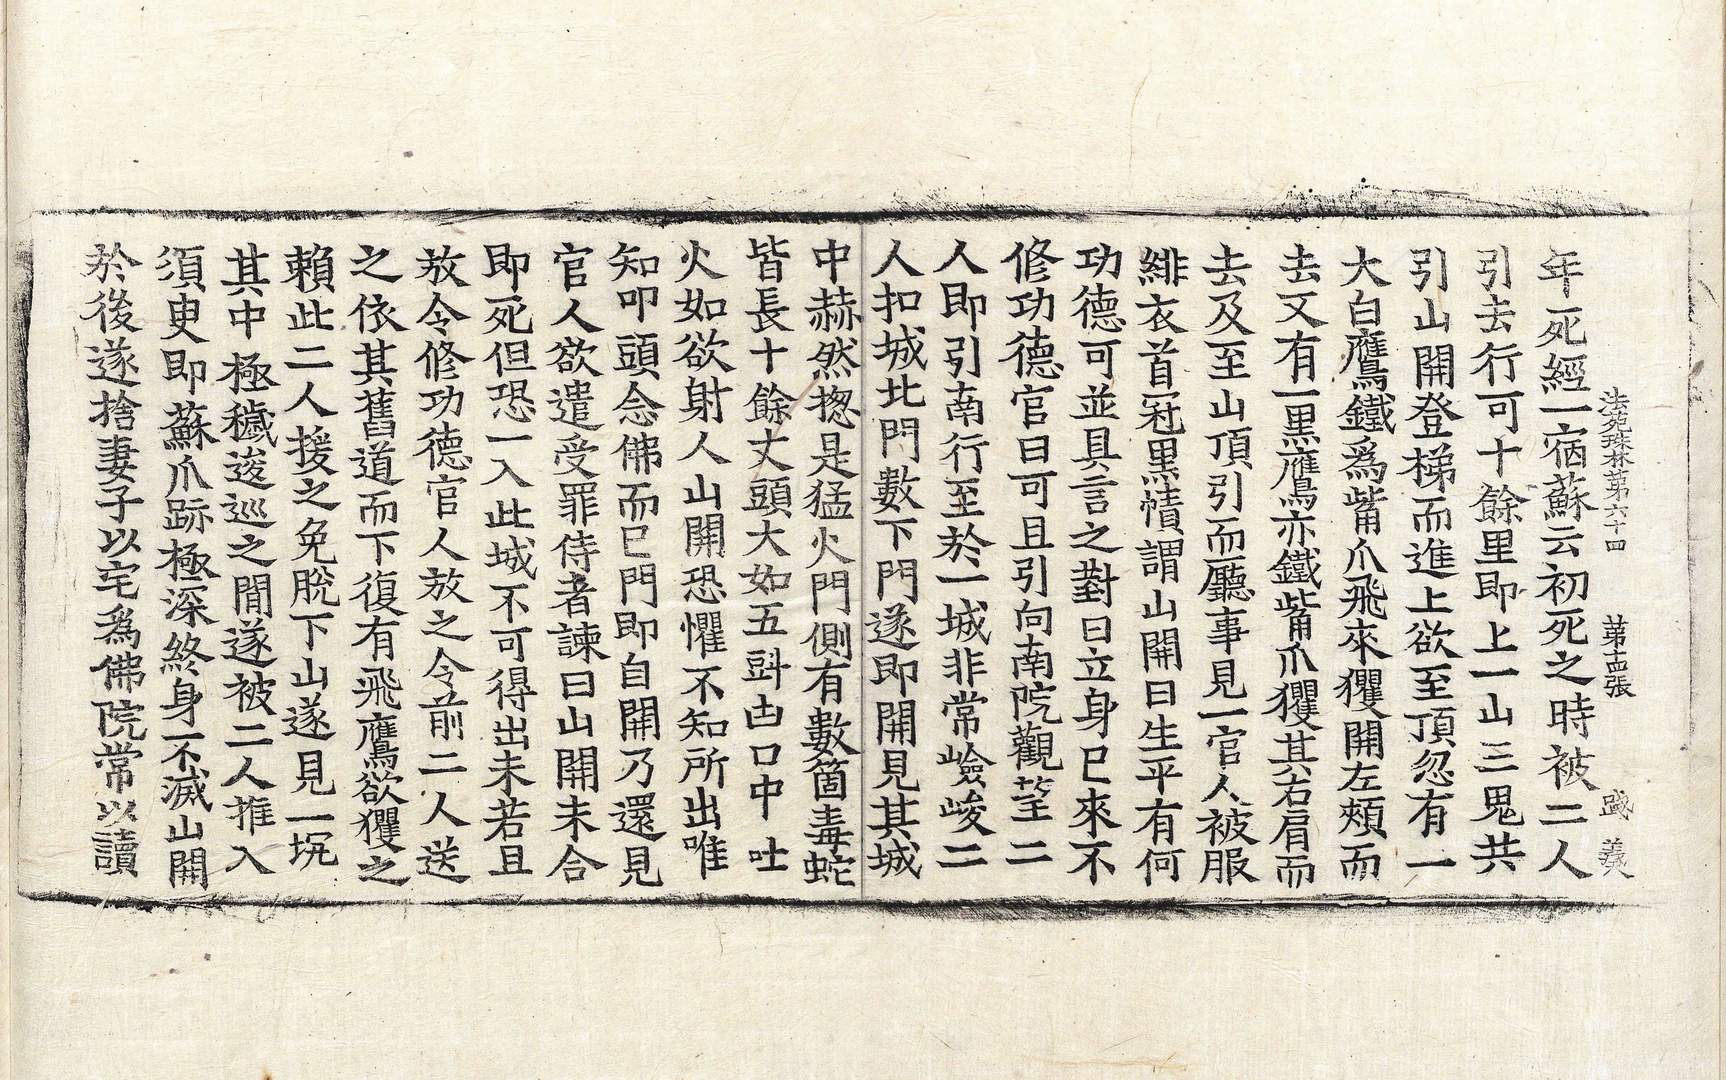 法苑珠林第六十四 第十四張 踐 義
年死經一宿蘇云初死之時被二人
引去行可十餘里即上一山三鬼共
引山開登梯而進上欲至頂忽有一
大白鷹鐵爲觜爪飛來玃開左頰而
去又有一黒鷹亦鐵觜爪玃其右肩而
去及至山頂引而廳事見一官人被服
緋衣首冠黒幘謂山開曰生平有何
功德可並具言之對曰立身已來不
修功德官曰可且引向南院觀望二
人即引南行至於一城非常嶮峻二
人扣城北門數下門遂即開見其城
中赫然揔是猛火門側有數箇毒蛇
皆長十餘丈頭大如五㪷凷口中吐
火如欲射人山開恐懼不知所出唯
知叩頭念佛而已門即自開乃還見
官人欲遣受罪侍者諫曰山開未合
即死但恐一入此城不可得出未若且
放令修功德官人放之令前二人送
之依其舊道而下復有飛鷹欲玃之
賴此二人援之免脫下山遂見一坑
其中極穢逡巡之閒遂被二人推入
須臾即蘇爪跡極深終身不滅山開
於後遂捨妻子以宅爲佛院常以讀